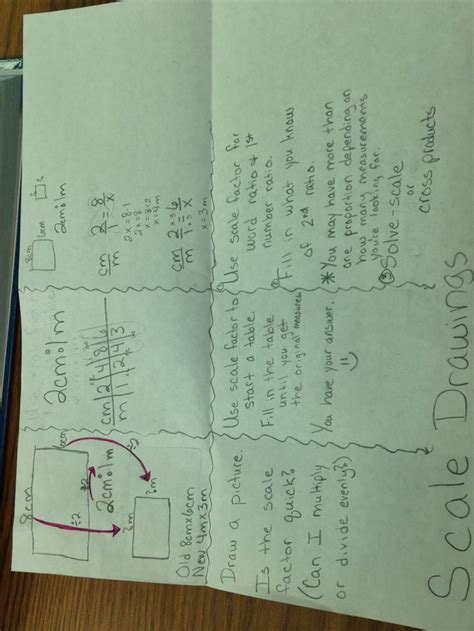 8cm
6cm
÷2
÷2
÷2
2cm:1m
?m
?m
Old 8cm x 6cm
New 4m x 3m
Draw a picture.
Is the scale
factor quick?
(Can I multiply
or divide evenly?)
2cm:1m
cm | 2 | 4 | 8 | 6
m | 1 | 2 | 4 | 3
Use scale factor to
start a table.
Fill in the table
until you get
the original measures
You have your answer.
8cm
6cm
2cm:1m
cm 2 = 8
m 1 x
2x=8·1
2x=8
x=8÷2
x=4m
cm 2 = 6
m 1 x
x=3m
Use scale factor for
word ratio & 1st
number ratio.
Fill in what you know
of 2nd ratio.
*You may have more than
one proportion depending on
how many measurements
you're looking for.
③Solve-scale
or
cross products
Scale Drawings